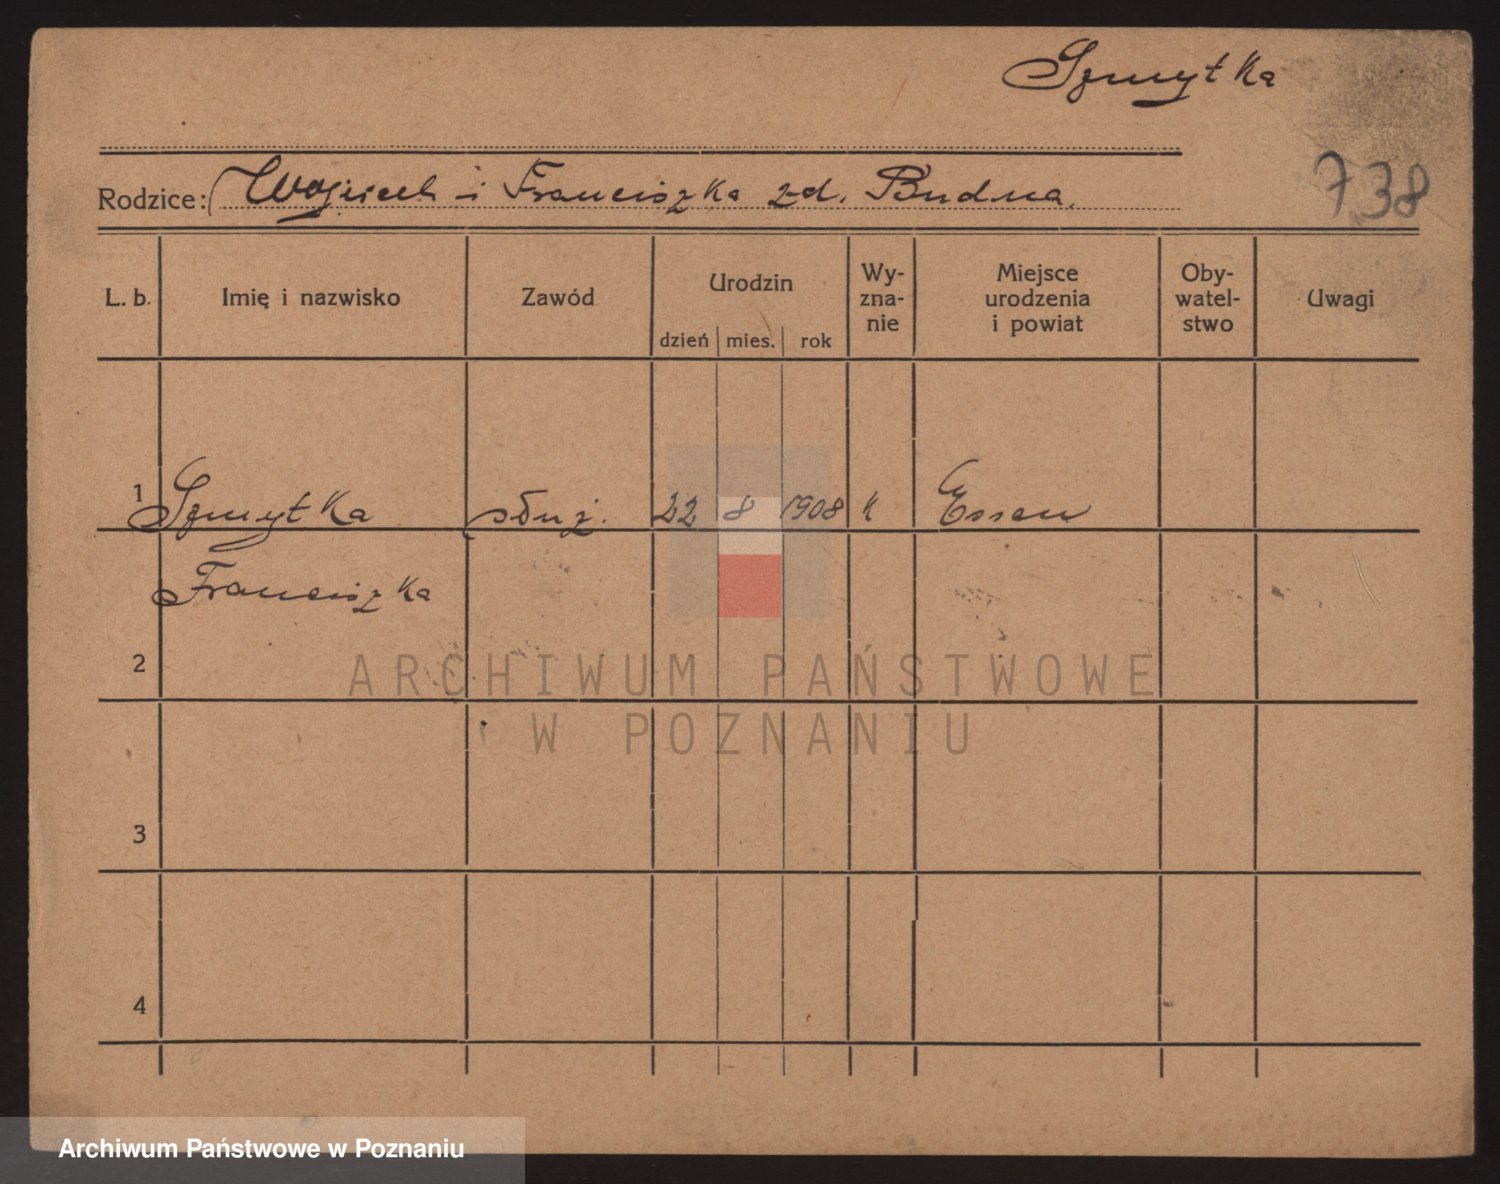 Szmytka
738
Rodzice: Wojciech i Franciszka z d. Budna
L. b. Imię i nazwisko Zawód Urodzin dzień mies. rok Wy-zna-nie Miejsce urodzenia i powiat Oby-watel-stwo Uwagi
1 Szmytka służ. 22 8 1908 k Essen
Franciszka
2
ARCHIWUM PAŃSTWOWE
W POZNANIU
3
4
Archiwum Państwowe w Poznaniu